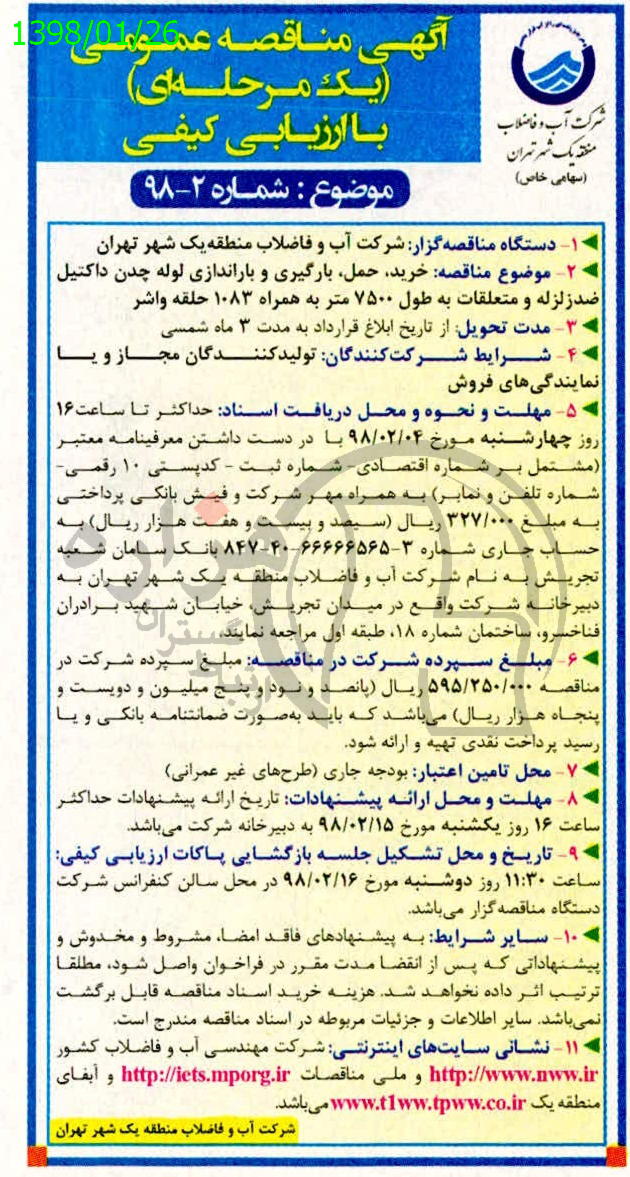 1398/01/26
آگهی مناقصه عمومی
(یک مرحله‌ای)
با ارزیابی کیفی
موضوع : شماره ۲-۹۸
شرکت آب و فاضلاب
منطقه یک شهر تهران
(سهامی خاص)
۱- دستگاه مناقصه‌گزار: شرکت آب و فاضلاب منطقه یک شهر تهران
۲- موضوع مناقصه: خرید، حمل، بارگیری و باراندازی لوله چدن داکتیل
ضدزلزله و متعلقات به طول ۷۵۰۰ متر به همراه ۱۰۸۳ حلقه واشر
۳- مدت تحویل: از تاریخ ابلاغ قرارداد به مدت ۳ ماه شمسی
۴- شرایط شرکت‌کنندگان: تولیدکنندگان مجاز و یا
نمایندگی‌های فروش
۵- مهلت و نحوه و محل دریافت اسناد: حداکثر تا ساعت ۱۶
روز چهارشنبه مورخ ۹۸/۰۲/۰۴ با در دست داشتن معرفینامه معتبر
(مشتمل بر شماره اقتصادی- شماره ثبت - کدپستی ۱۰ رقمی-
شماره تلفن و نمابر) به همراه مهر شرکت و فیش بانکی پرداختی
به مبلغ ۳۲۷/۰۰۰ ریال (سیصد و بیست و هفت هزار ریال) به
حساب جاری شماره ۳-۶۶۶۶۶۵۶۵-۴۰-۸۴۷ بانک سامان شعبه
تجریش به نام شرکت آب و فاضلاب منطقه یک شهر تهران به
دبیرخانه شرکت واقع در میدان تجریش، خیابان شهید برادران
فناخسرو، ساختمان شماره ۱۸، طبقه اول مراجعه نمایند.
۶- مبلغ سپرده شرکت در مناقصه: مبلغ سپرده شرکت در
مناقصه ۵۹۵/۲۵۰/۰۰۰ ریال (پانصد و نود و پنج میلیون و دویست و
پنجاه هزار ریال) می‌باشد که باید به‌صورت ضمانتنامه بانکی و یا
رسید پرداخت نقدی تهیه و ارائه شود.
۷- محل تامین اعتبار: بودجه جاری (طرح‌های غیر عمرانی)
۸- مهلت و محل ارائه پیشنهادات: تاریخ ارائه پیشنهادات حداکثر
ساعت ۱۶ روز یکشنبه مورخ ۹۸/۰۲/۱۵ به دبیرخانه شرکت می‌باشد.
۹- تاریخ و محل تشکیل جلسه بازگشایی پاکات ارزیابی کیفی:
ساعت ۱۱:۳۰ روز دوشنبه مورخ ۹۸/۰۲/۱۶ در محل سالن کنفرانس شرکت
دستگاه مناقصه گزار می‌باشد.
۱۰- سایر شرایط: به پیشنهادهای فاقد امضا، مشروط و مخدوش و
پیشنهاداتی که پس از انقضا مدت مقرر در فراخوان واصل شود، مطلقا
ترتیب اثر داده نخواهد شد. هزینه خرید اسناد مناقصه قابل برگشت
نمی‌باشد. سایر اطلاعات و جزئیات مربوطه در اسناد مناقصه مندرج است.
۱۱- نشانی سایت‌های اینترنتی: شرکت مهندسی آب و فاضلاب کشور
http://www.nww.ir و ملی مناقصات http://iets.mporg.ir و آبفای
منطقه یک www.t1ww.tpww.co.ir می‌باشد.
شرکت آب و فاضلاب منطقه یک شهر تهران